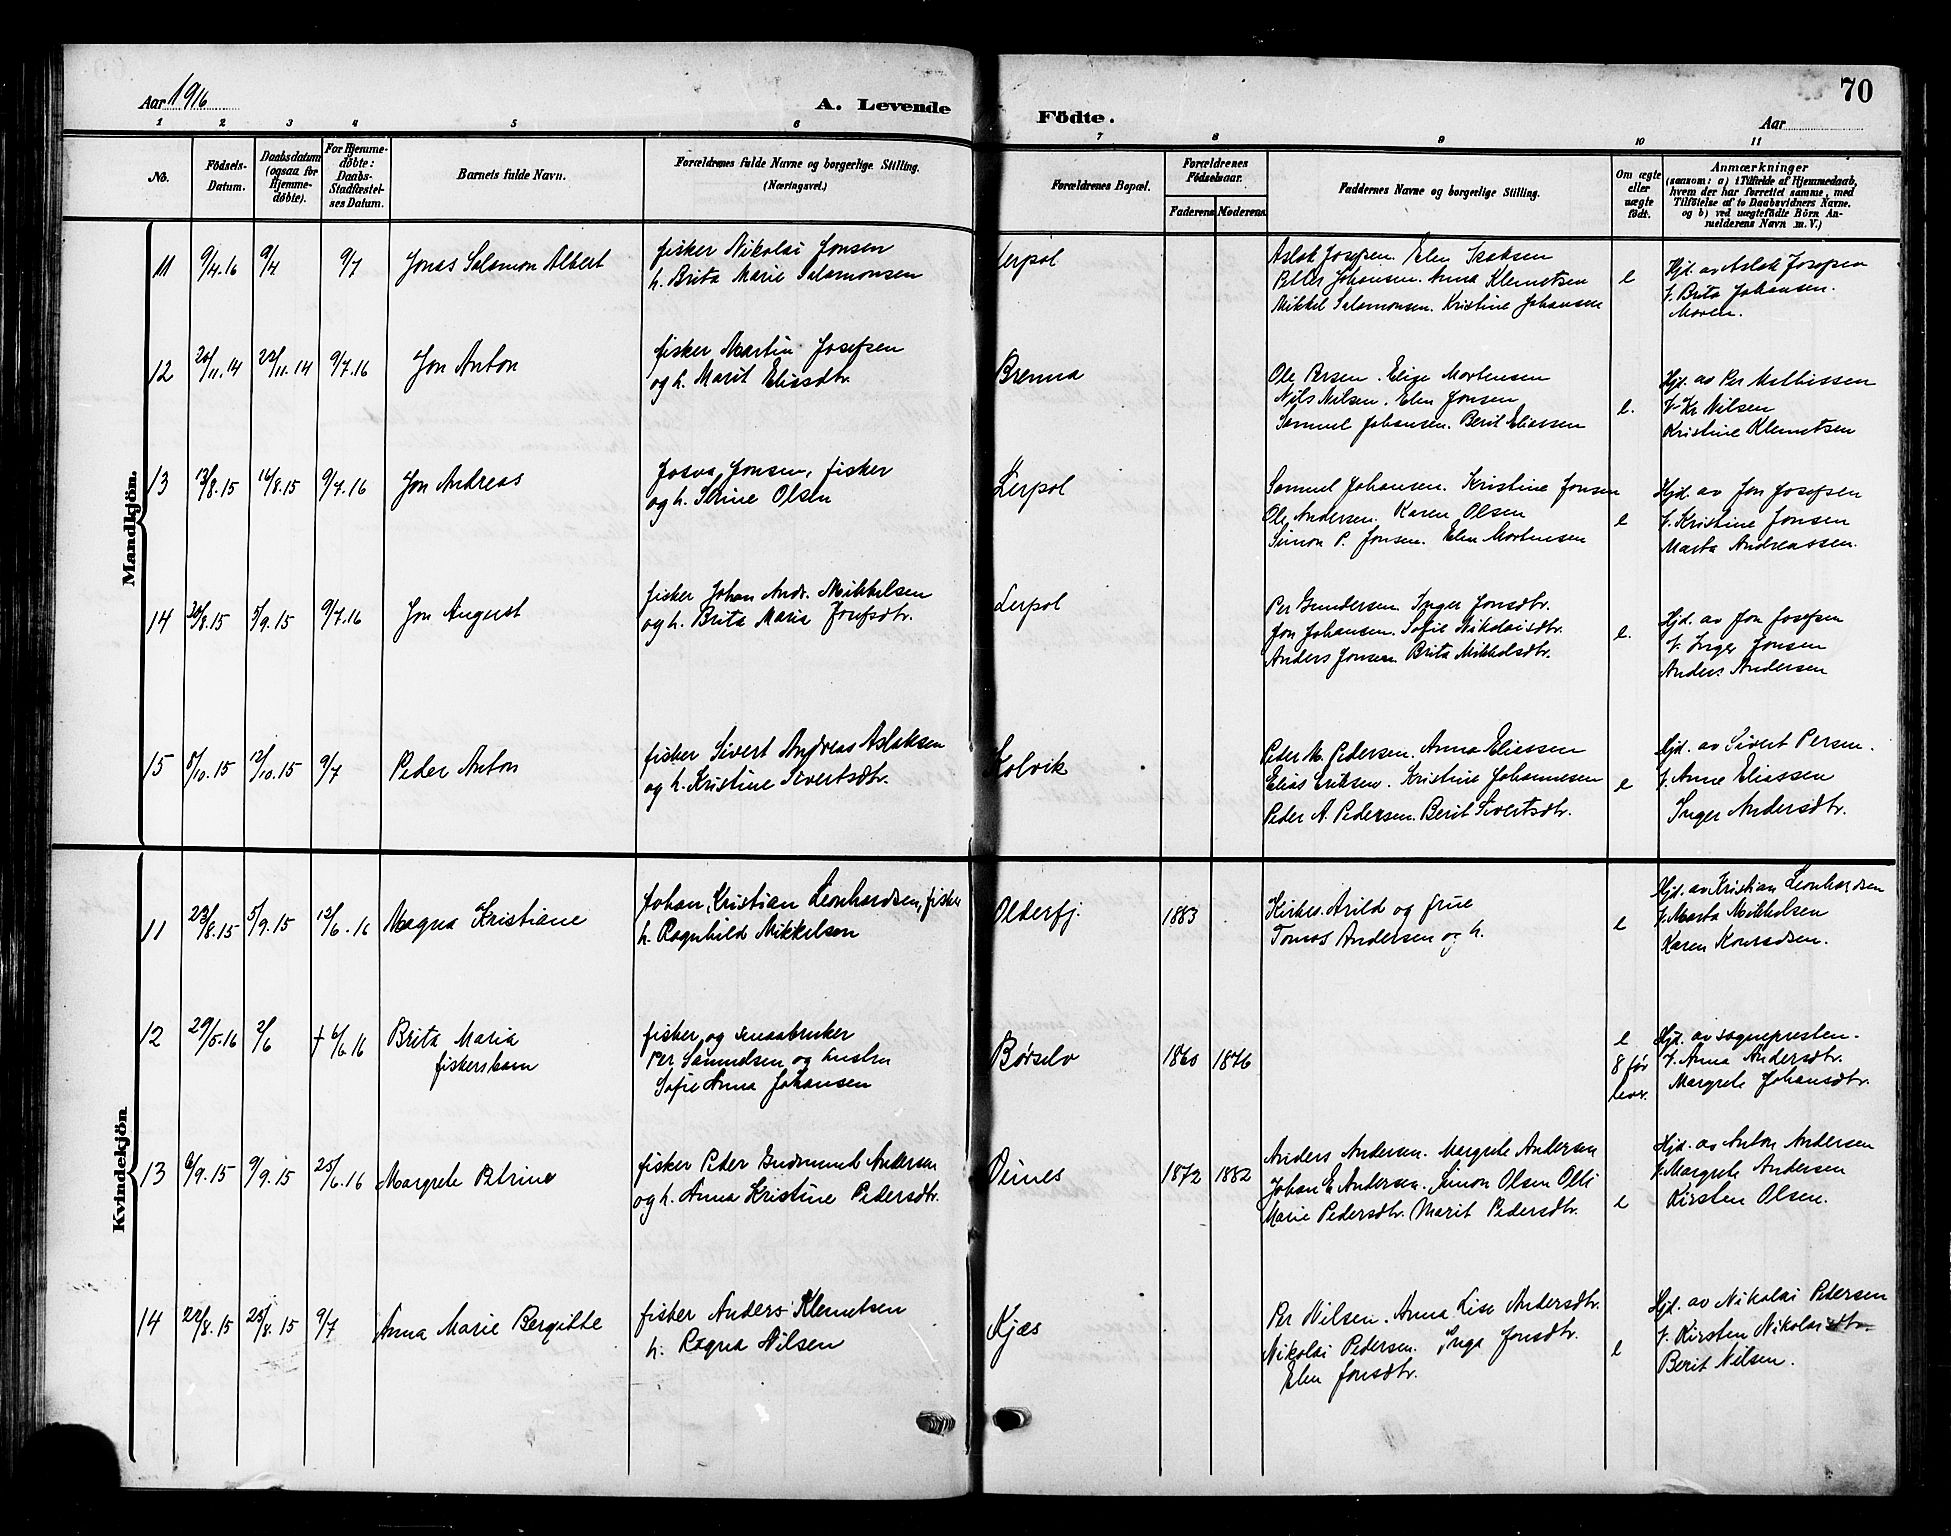 70
Aar 1916
A. Levende
Födte.
Aar
1 2 3 4 5 6 7 8 9 10 11
No.
Födsels-
Datum.
Daabsdatum
(ogsaa for
Hjemme-
döbte).
For Hjemme-
döbte:
Daabs-
Stadfæstel-
ses Datum.
Barnets fulde Navn.
Forældrenes fulde Navne og borgerlige Stilling.
(Næringsvei.)
Forældrenes Bopæl.
Forældrenes
Födselsaar.
Faderens Moderens
Faddernes Navne og borgerlige Stilling.
Om ægte
eller
uægte
födt.
Anmærkninger
(saasom: a) i Tilfælde af Hjemmedaab,
hvem der har forrettet samme, med
Tilföielse af to Daabsvidners Navne.
og b) ved uægtefödte Börn An-
melderens Navn m. V.)
Mandkjön.
11 9/4.16 9/4 9/7 Jonas Salamon Albert
fisker Nikolai Jonsen
h. Brita Marie Salamonsen
Lerpol
Aslak Josefsen. Elen Isaksen
Peder Johansen. Anna Klemetsen
Mikkel Salamonsen. Kristine Johansen
e
Hjd. av Aslak Josefsen
V. Brita Johansen.
Moren.
12 20/11.14 22/11.14 9/7.16 Jon Anton
fisker Martin Josefsen
og h. Marit Eliasdtr.
Brenna
Ole Persen. Elige Mortensen
Nils Nilsen. Elen Jonsen
Samuel Johansen. Berit Eliassen
e.
Hjd. av Per Mathissen
V. Kr Nilsen
Kristine Klemetsen
13 13/8.15 16/8.15 9/7.16 Jon Andreas
Josva Jonsen, fisker
og h. Serine Olsen
Lerpol
Samuel Johansen. Kristine Jonsen
Ole Andersen. Karen Olsen
Simon P. Jonsen. Elen Mortensen
e
Hjd. av Jon Josefsen
V. Kristine Jonsen
Marta Andreassen.
14 30/8.15 5/9.15 9/7.16 Jon August
fisker Johan Andr. Mikkelsen
og h. Brita Maria Josefsdtr.
Lerpol
Per Gundersen Inger Jonsdtr.
Jon Johansen. Sofie Nikolaisdtr.
Anders Jonsen. Brita Mikkelsdtr.
e.
Hjd. av Jon Josefsen
V. Inger Jonsen
Anders Andersen
15 5/10.15 12/10.15 9/7 Peder Anton
fisker Sivert Andreas Aslaksen
og h. Kristine Sivertsdtr.
Kolvik
Peder M. Pedersen. Anna Eliassen
Elias Eriksen. Kristine Johannesen
Peder A. Pedersen. Berit Sivertsdtr.
e
Hjd. av Sivert Persen.
V. Anne Eliassen
Inger Andersdtr.
Kvindekjön.
11 23/8.15 5/9.15 12/6.16 Magna Kristiane
Johan Kristian Leonhardsen, fisker
h. Ragnhild Mikkelsen
Olderfj. 1883
Kirkes. Arild og frue
Tomas Andersen og h.
e
Hjd. av Kristian Leonhardsen
V. Marta Mikkelsen
Karen Konradsen.
12 29/5.16 2/6 † 6/6.16 Brita Maria
fiskersbarn
fisker og smaabruker
Per Samuelsen og hustru
Sofie Anna Johansen
Børselv 1860 1876
e
8 før
lever.
Hjd. av sognepresten.
V. Anna Andersdtr.
Margrete Johansdtr.
13 6/9.15 9/9.15 25/6.16 Margrete Petrine
fisker Peder Gudmund Andersen
og h. Anna Kristine Pedersdtr.
Oines 1872 1882
Anders Andersen. Margrete Andersen
Johan E Andersen. Simon Olsen Olli
Marie Pedersdtr. Marit Pedersdtr.
e
Hjd. av Anton Andersen
V. Margrete Andersen
Kirsten Olsen.
14 22/8.15 25/8.15 9/7 Anna Marie Bergitte
fisker Anders Klemetsen
h. Ragna Nilsen
Kjæs
Per Nilsen. Anna Lise Andersdtr.
Nikolai Pedersen. Inga Jonsdtr.
Elen Jonsdtr.
e
Hjd. av Nikolai Pedersen
V. Kirsten Nikolaisdtr.
Berit Nilsen.